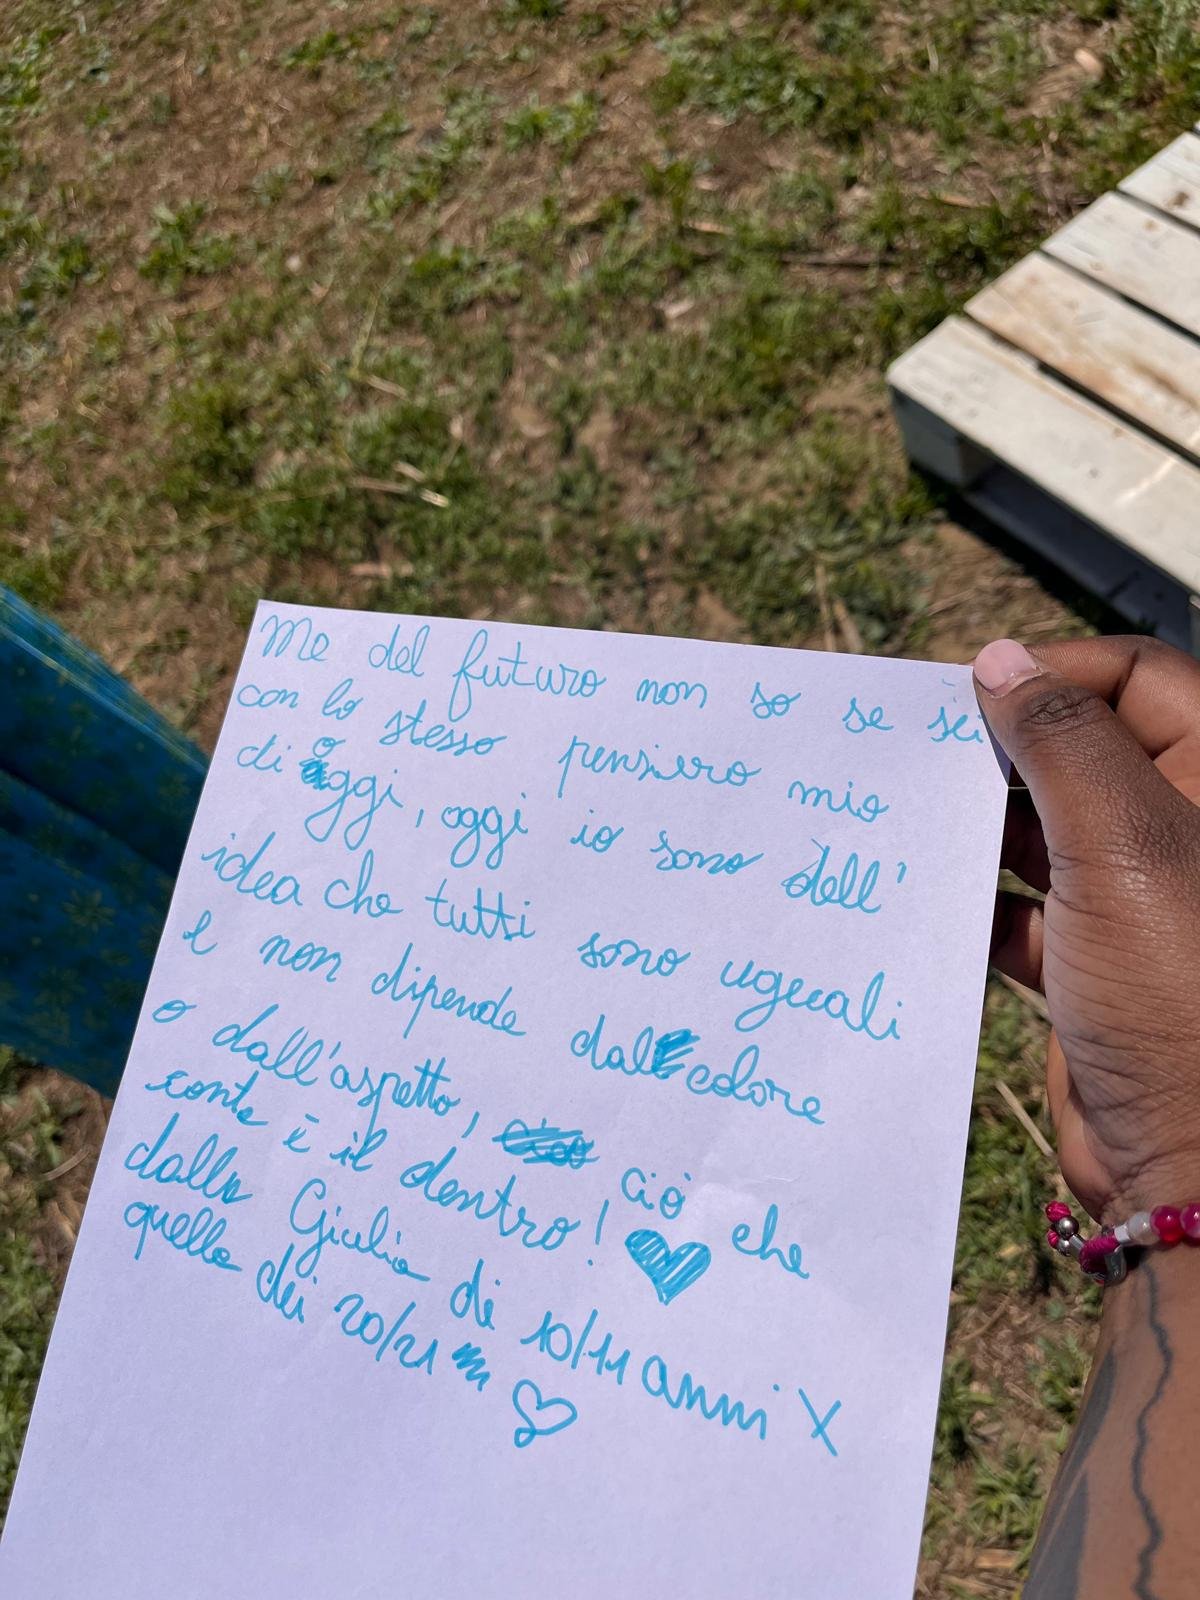 Me del futuro non so se sei
con lo stesso pensiero mio
di oggi, oggi io sono dell'
idea che tutti sono ugecali
e non dipende dal colore
o dall'aspetto, ciò che
conta è il dentro!
dalla Giulia di 10/11 anni X
quella dei 20/21